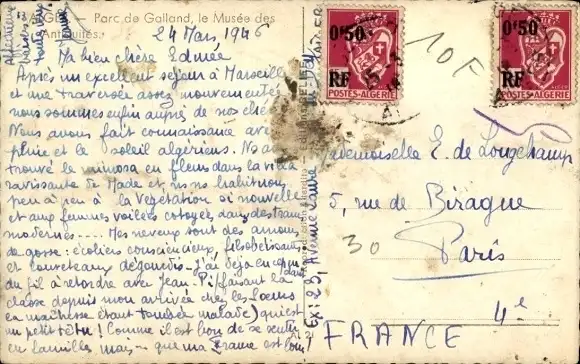 ALGER — Parc de Galland, le Musée des
Antiquités.
24 Mars 1946
Ma bien chère Edmée
Après un excellent séjour à Marseille
et une traversée assez mouvementée
nous sommes enfin auprès de nos ché
Nous avons fait connaissance avec
pluie et le soleil algériens. Ns av
trouvé le mimosa en fleurs dans la villa
ravissante de Made et, ns ns habituons
peu à peu à la végétation si nouvelle
et aux femmes voilées cotoyées dans des trams
modernes.... Mes neveux sont des amours
de gosse: écoliers consciencieux, fils obéissants
et louveteaux dégourdis. J'ai déjà en
du fil à retordre avec Jean P. (faisant la
classe depuis mon arrivée chez les Soeurs
la maîtresse étant tombée malade) qui est
un petit têtu! Comme il est bon de se sentir
en famille mais — que ma France est loin!
0F50
RF
POSTES-ALGERIE
0F50
RF
POSTES-ALGERIE
10F
Mademoiselle E. de Longchamp
5, rue de Biragne
30
Paris
4e
FRANCE
Ex: 23, Avenue